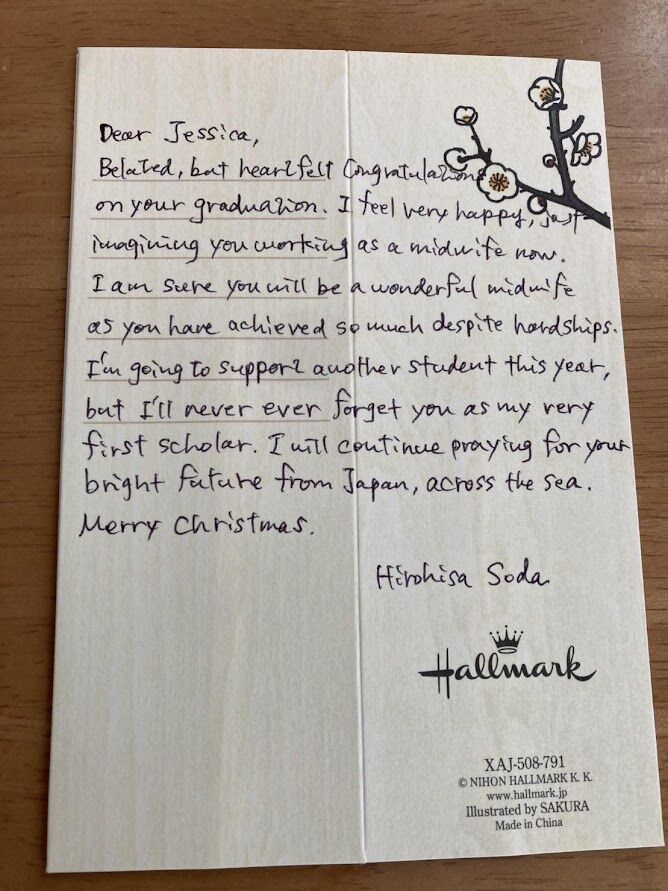 Dear Jessica,
Belated, but heartfelt Congratulations
on your graduation. I feel very happy, just
imagining you working as a midwife now.
I am sure you will be a wonderful midwife
as you have achieved so much despite hardships.
I'm going to support another student this year,
but I'll never ever forget you as my very
first scholar. I will continue praying for your
bright future from Japan, across the sea.
Merry Christmas.
Hirohisa Soda
Hallmark
XAJ-508-791
© NIHON HALLMARK K. K.
www.hallmark.jp
Illustrated by SAKURA
Made in China